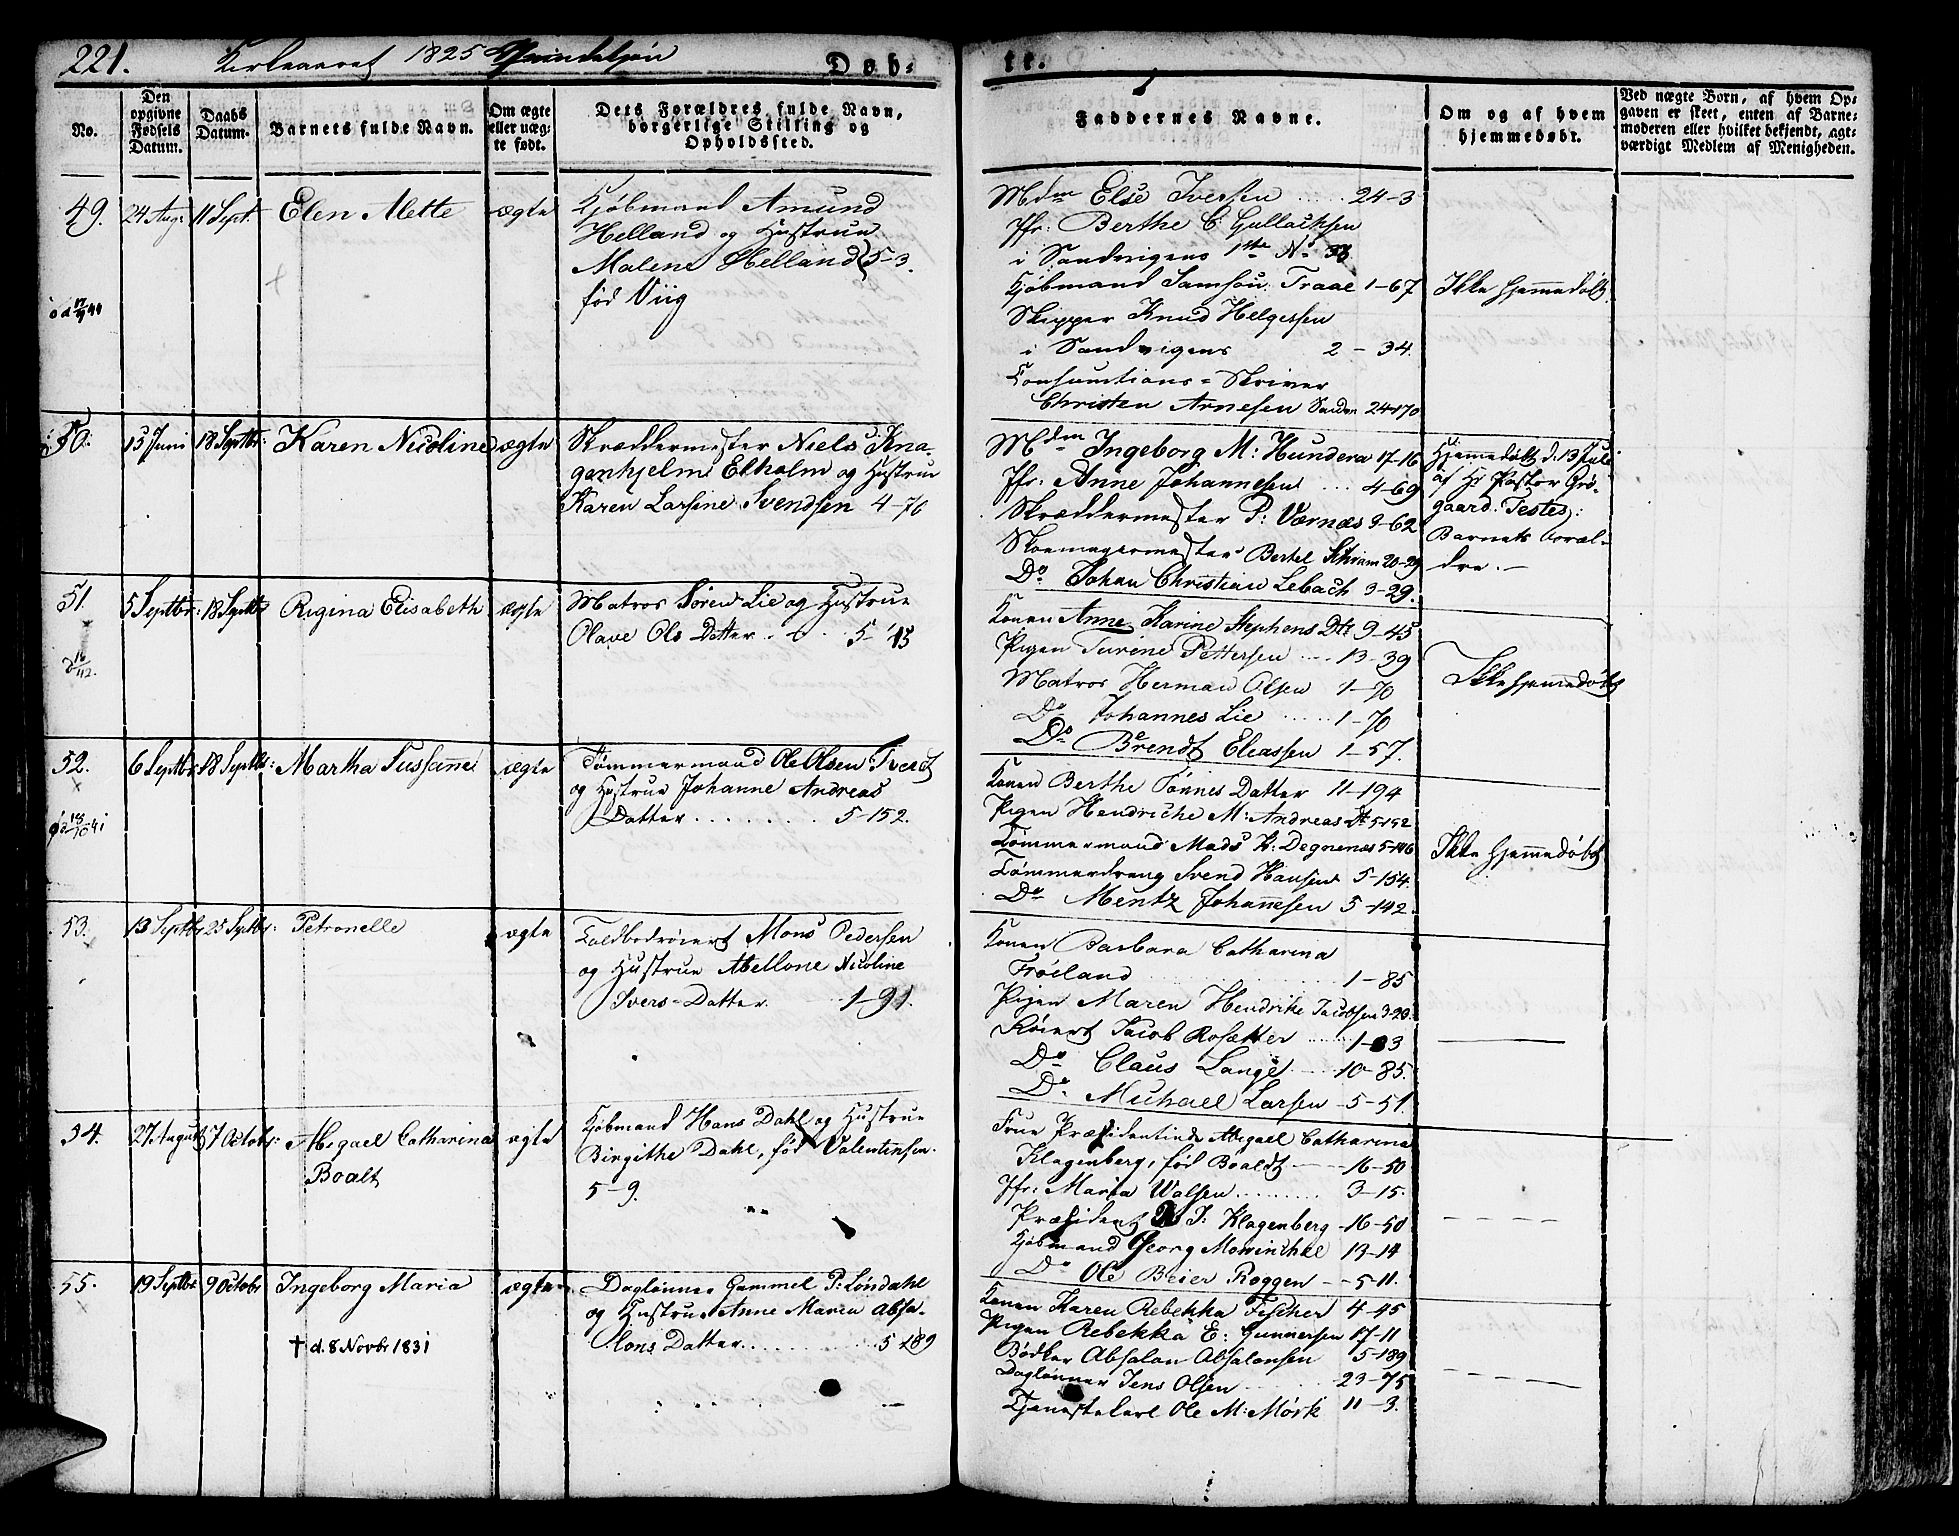 221. Kirkeaaret 1825 Qvindekjøn Døb-
te.
No.
Den
opgivne
Fødsels
Datum.
Daabs
Datum.
Barnets fulde Navn.
Om ægte
eller uæg-
te født.
Dets Forældres fulde Navn,
borgerlige Stilling og
Opholdssted.
Faddernes Navne.
Om og af hvem
hjemmedøbt.
Ved uægte Børn, af hvem Op-
gaven er skeet, enten af Barne-
moderen eller hvilket bekjendt, agt-
værdigt Medlem af Menigheden.
49. 24 Aug: 11 Sept. Elen Mette ægte
Kjøbmand Amund
Helland og Hustrue
Malene Helland 5-3.
fød Viig
Mdm Else Iversen 24-3
Jfr: Berthe C: Gullachsen
i Sandvigens 1ste No 38
Kjøbmand Samson Traae 1-67
Skipper Knud Helgessen
i Sandvigens 2-34.
Consumtions-Skriver
Christen Arnesen Sanden 24-170
Ikke hjemmedøbt
50. 15 Juni 18 Septbr: Karen Nicoline ægte
Skræddermester Niels Kna-
genhjelm Ekholm og Hustrue
Karen Larsine Svendsen 4-70
Mdm Ingeborg M: Hundera 17-16
Jfr: Anne Johannesen 4-69
Skræddermester P: Værnæs 3-62
Skoemagermester Bertel Schram 20-29
Do Johan Christian Lebach 3-29.
Hjemedøbt d: 13 Juli
af Hr Pastor Grø-
gaard. Testes:
Barnets foræl-
dre.
51. 5 Septbr: 18 Septbr Regina Elisabeth ægte
Matros Søren Lie og Hustrue
Olave Ols Datter 5-15
Konen Anne Karine Stephens Dtr 9-45
Pigen Turine Pettersen 13-39
Matros Herman Olsen 1-70
Do Johannes Lie 1-70
Do Brendt Eliassen 1-57.
Ikke hjemmedøbt
52. 6 Septbr 18 Septbr: Martha Sussanne ægte
Tømmermand Ole Olsen Tvedt
og Hustrue Johanne Andreas
Datter 5-152.
Konen Berthe Tønnes Datter 11-194
Pigen Hendriche M: Andreas Dt 5-152
Tømmermand Mads K: Degnenæs 5-146
Tømmerdreng Svend Hansen 5-154.
Do Mentz Johannesen 5-142.
Ikke hjemmedøbt
53. 13 Septbr 25 Septbr: Petronelle ægte
Toldbodrøiert Mons Pedersen
og Hustrue Abellone Nicoline
Ivers-Datter 1-91.
Konen Barbara Catharina
Frøiland 1-85
Pigen Maren Hendrike Jacobsen 3-20
Røiert Jacob Rosætter 1-83
Do Claus Lange 10-85.
Do Michael Larsen 5-51.
54. 27 August 7 Octobr: Abigael Catharina ægte
Boalt
Kjøbmand Hans Dahl og Hustrue
Birgithe Dahl, fød Valentinsen.
5-9.
Frue Præsidentinde Abigael Catharina
Klagenberg, fød Boaldt 16-50
Jfr: Maria Walsen 3-15.
Præsident J: Klagenberg 16-50
Kjøbmand Georg Mowinchel 13-14
Do Ole Beier Roggen 5-11.
55. 19 Septbr 9 Octobr Ingeborg Maria ægte
† d. 8 Novbr 1831
Daglønner Gammel P: Løndahl
og Hustrue Anne Maria Absa-
lons Datter 5-189
Konen Karen Rebekka Fischer 4-45
Pigen Rebekka E: Gunnersen 17-11
Bødker Absalon Absalonsen 5-189
Daglønner Jens Olsen 23-75
Tjenestekarl Ole M: Mørk 11-3.